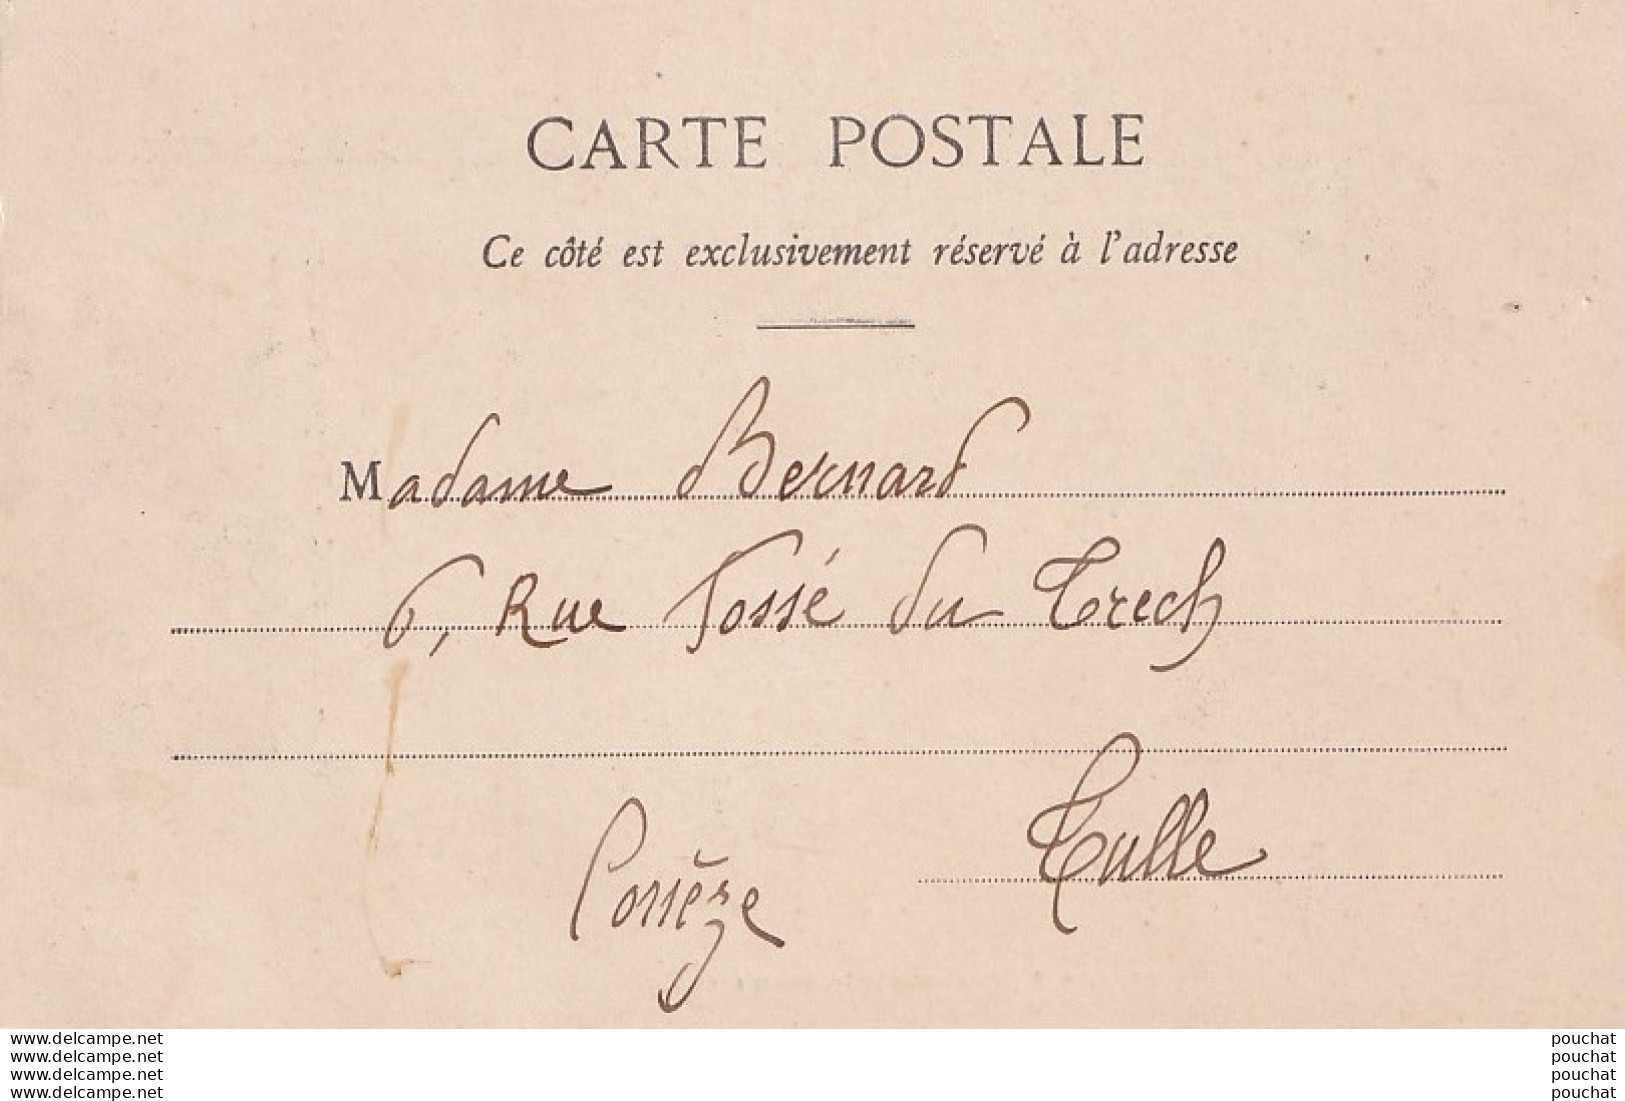 CARTE POSTALE
Ce côté est exclusivement réservé à l'adresse
Madame Bernard
6, Rue Fossé du Trech
Tulle
Corrèze
www.delcampe.net pouchat
www.delcampe.net pouchat
www.delcampe.net pouchat
www.delcampe.net pouchat